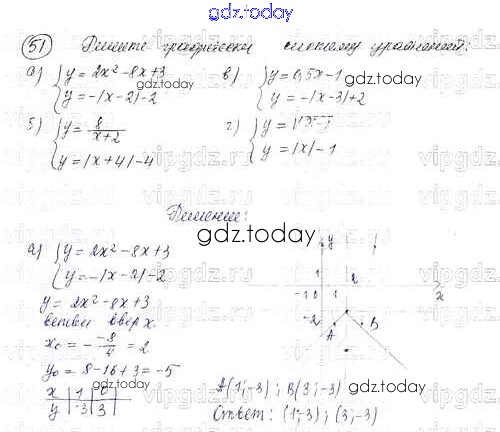 gdz.today
51 Решите графически систему уравнений:
а) { y = 2x² - 8x + 3
y = -|x - 2| - 2
в) { y = 0,5x - 1
y = -|x - 3| + 2
б) { y = 8/(x + 2)
y = |x + 4| - 4
г) { y =
y = |x| - 1
Решение:
gdz.today
а) { y = 2x² - 8x + 3
y = -|x - 2| - 2
y = 2x² - 8x + 3
ветви вверх.
x₀ = - -8/4 = 2
y₀ = 8 - 16 + 3 = -5
x | 1 | 0
y | -3 | 3
y
1
2
-1 0 1
x
-2
A
B
A(1; -3); B(3; -3)
Ответ: (1; -3); (3; -3)
gdz.today
gdz.today
vipgdz.ru